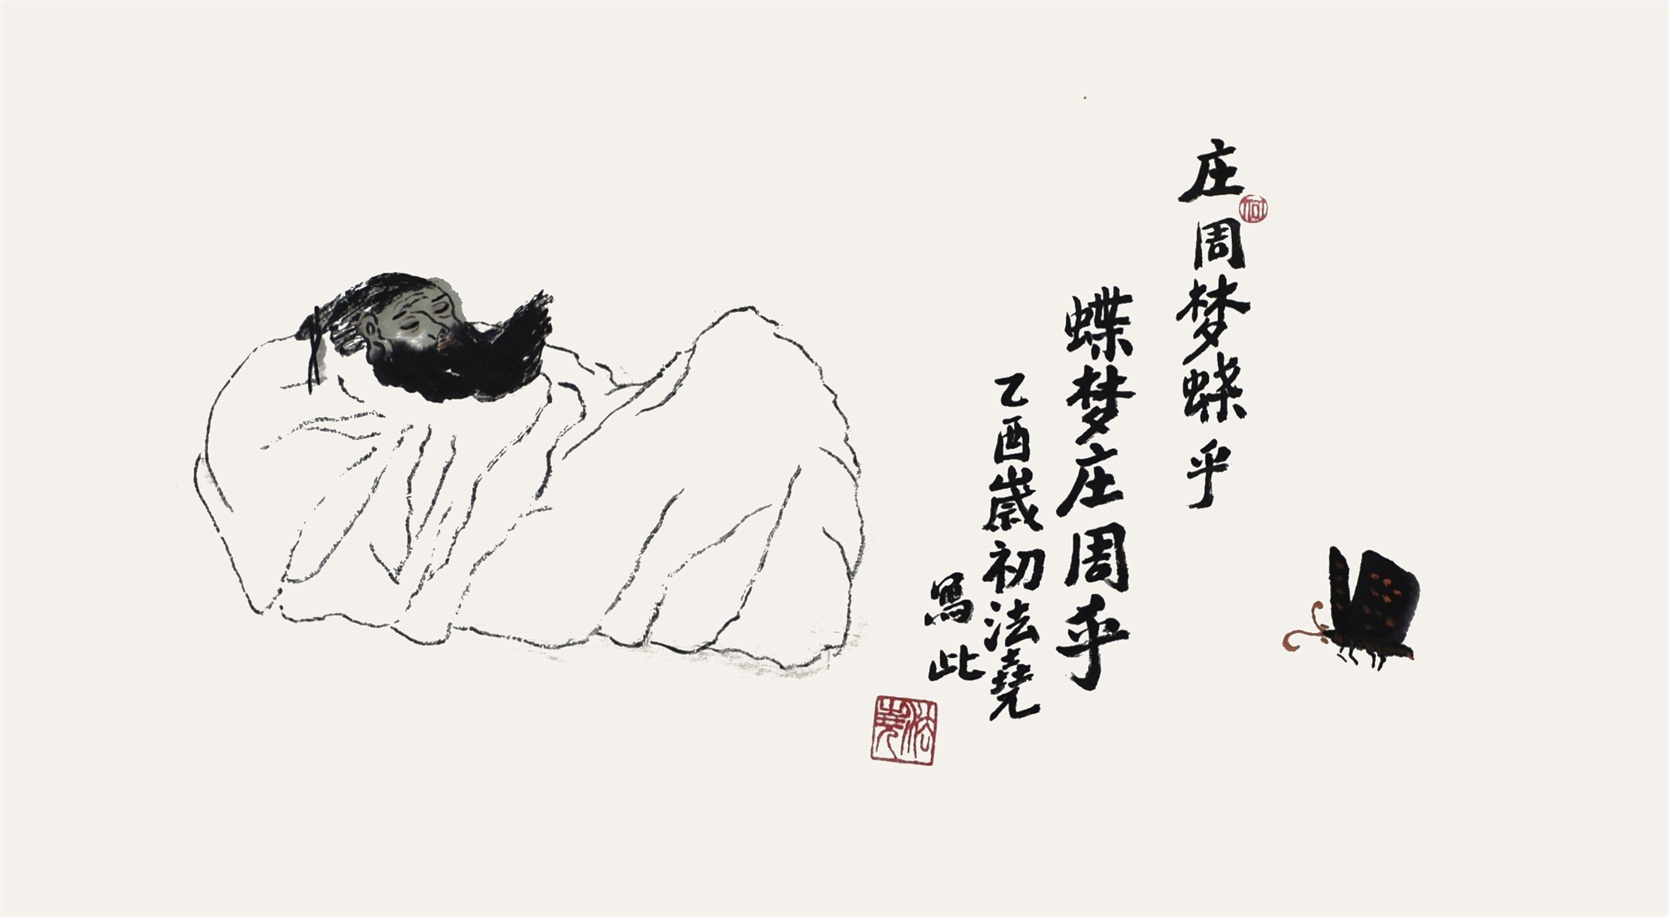 庄周梦蝶乎
蝶梦庄周乎
乙酉岁初法堯
寫此
法堯